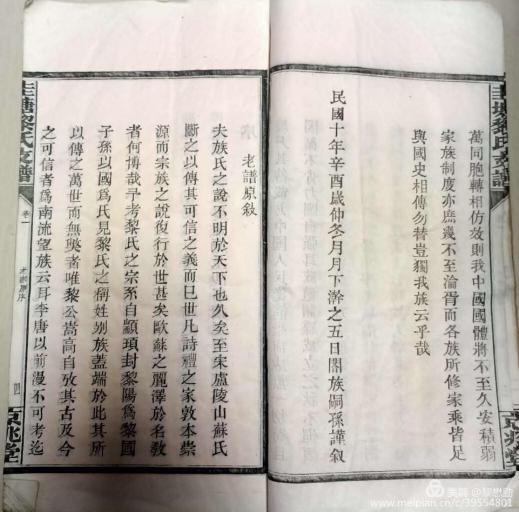 萬同胞轉相仿效則我中國國體將不至久安積弱
家族制度亦庶幾不至淪胥而各族所修家乘皆足
與國史相傳勿替豈獨我族云乎哉
民國十年辛酉歲仲冬月月下澣之五日閤族嗣孫謹叙
圭塘黎氏支譜
老譜原敘
夫族氏之說不明於天下也久矣至宋盧陵山蘇氏
斷之以傳其可信之義而巳世凡詩禮之家敦本崇
源而宗族之說復行於世甚矣歐蘇之麗澤於名教
者何博哉予考黎氏之宗系自顓頊封黎陽爲黎國
子孫以國爲氏見黎氏之稱姓别族蓋端於此其所
以傳之萬世而無斁者唯黎公嵩高自攷其古及今
之可信者爲南流望族云耳李唐以前漫不可考迄
圭塘黎氏支譜
卷一
四
京兆堂
美篇 @黎懋勛
www.meipian.cn/c/39554801